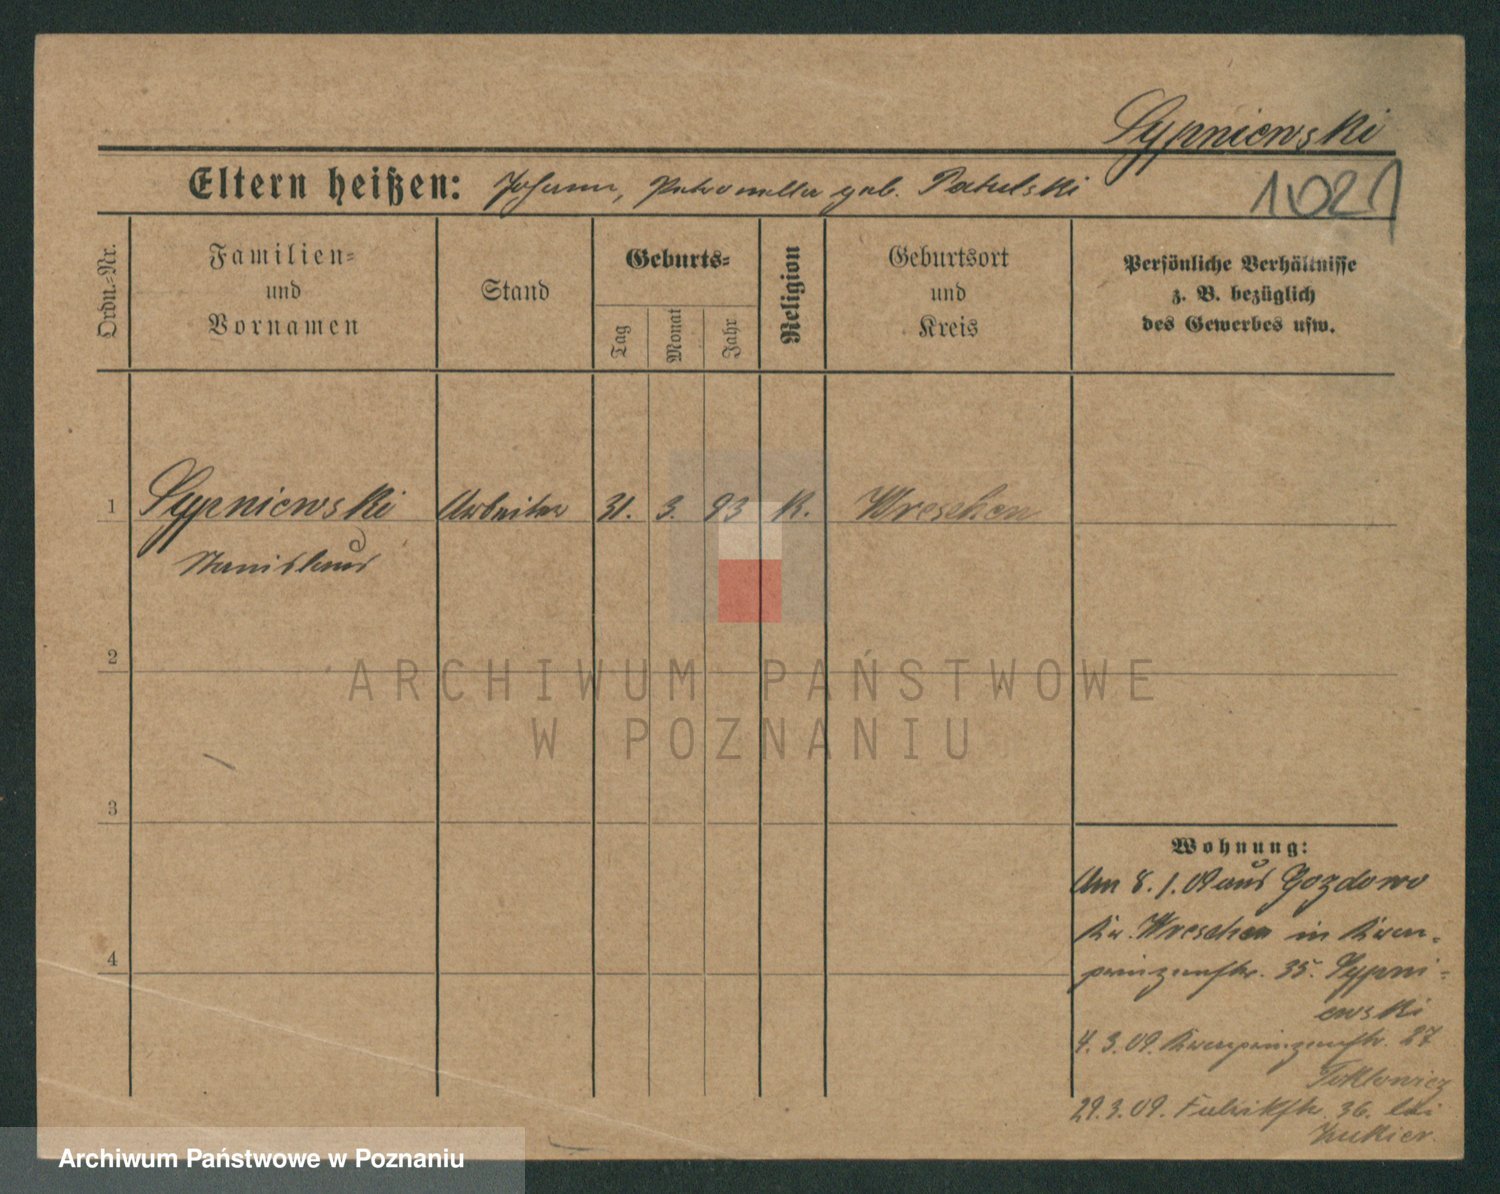 Sypniewski
Eltern heißen: Johann, Petronella geb. Patulski
1021
Ordn.-Nr.
Familien-
und
Vornamen
Stand
Geburts-
Tag
Monat
Jahr
Religion
Geburtsort
und
Kreis
Persönliche Verhältnisse
z. B. bezüglich
des Gewerbes usw.
1 Sypniewski Arbeiter 31. 3. 93 K. Wreschen
Stanislaus
2
3
4
Wohnung:
Am 8.1.09 aus Gozdowo
Kr. Wreschen in Kron-
prinzenstr. 35. Sypni-
ewski
4.3.09. Kronprinzenstr. 27
29.3.09. Fabrikstr. 36. bei
Zukier.
ARCHIWUM PAŃSTWOWE
W POZNANIU
Archiwum Państwowe w Poznaniu